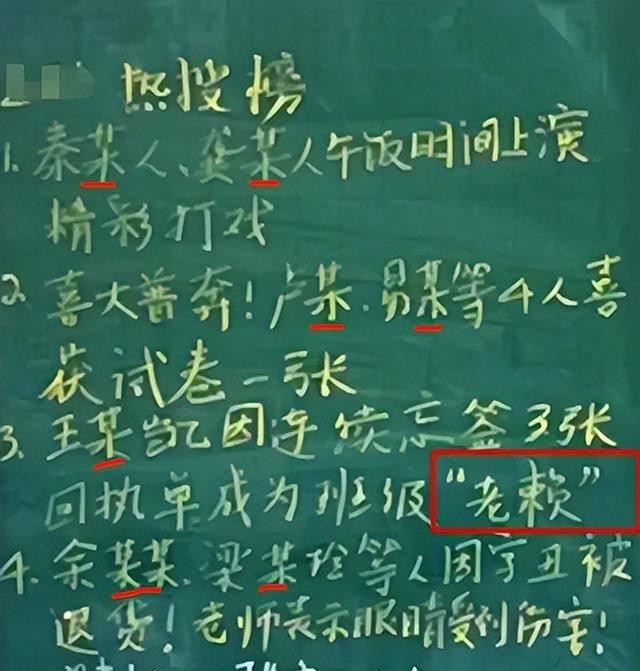 热搜榜
1. 秦某人、龚某人午饭时间上演
精彩打戏
2. 喜大普奔！卢某、易某等4人喜
获试卷一张
3. 王某凯因连续忘签3张
回执单成为班级“老赖”
4. 余某某、梁某玲等人因字丑被
退货！老师表示眼睛受到伤害！